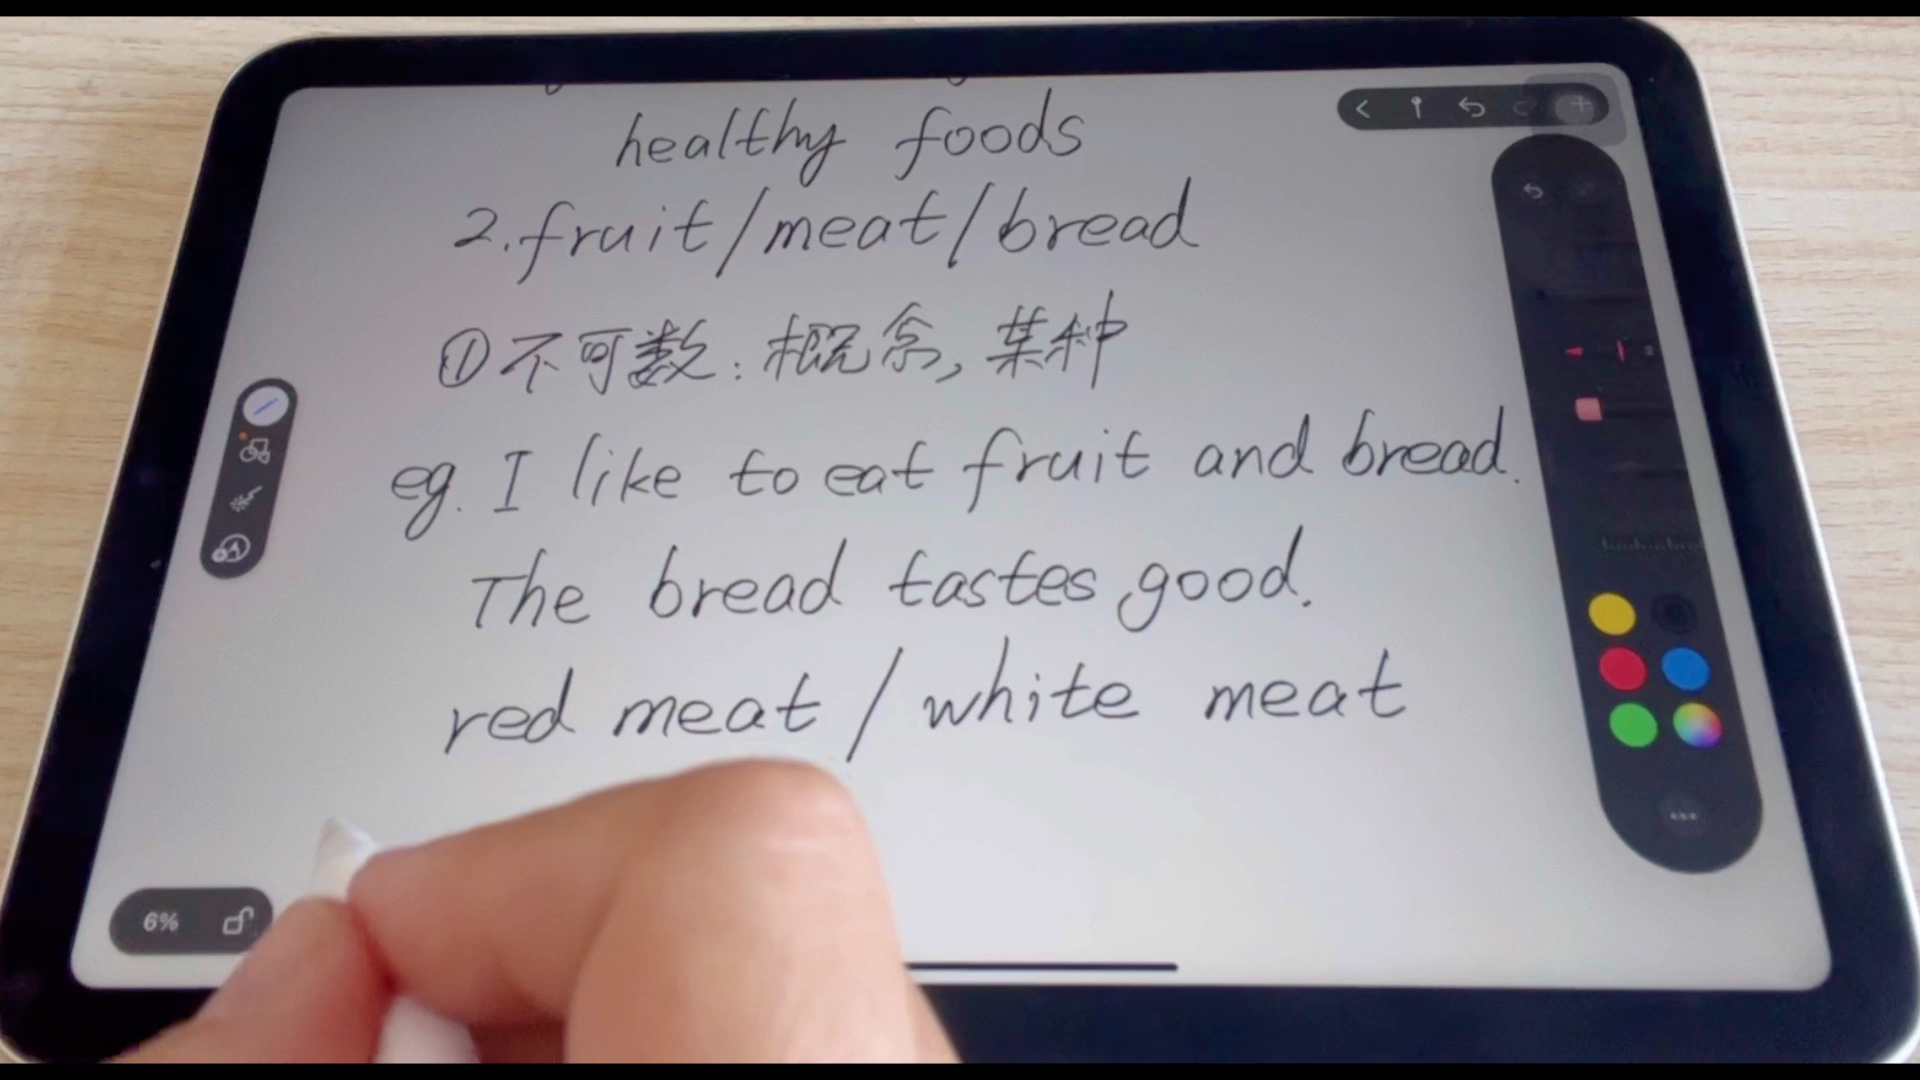 healthy foods
2.fruit/meat/bread
①不可数:概念,某种
eg. I like to eat fruit and bread.
The bread tastes good.
red meat / white meat
6%